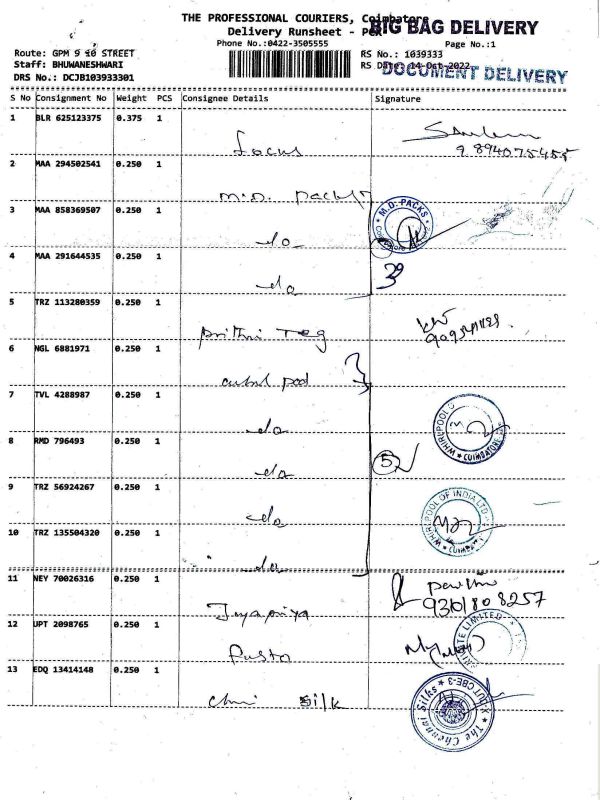 THE PROFESSIONAL COURIERS, Coimbatore
BIG BAG DELIVERY
Delivery Runsheet -
Phone No.:0422-3505555
Page No.:1
Route: GPM 9 10 STREET
RS No.: 1039333
Staff: BHUWANESHWARI
RS Date: 14-Oct-2022
DOCUMENT DELIVERY
DRS No.: DCJB103933301
S No Consignment No Weight PCS Consignee Details Signature
1 BLR 625123375 0.375 1
focus
2 MAA 294502541 0.250 1
M.D. Packs
M.D. PACKS
3 MAA 858369507 0.250 1
do
4 MAA 291644535 0.250 1
do
5 TRZ 113280359 0.250 1
6 NGL 6881971 0.250 1
7 TVL 4288987 0.250 1
do
WHIRLPOOL
COIMBATORE
8 RMD 796493 0.250 1
do
5
9 TRZ 56924267 0.250 1
do
WHIRLPOOL OF INDIA LTD
10 TRZ 135504320 0.250 1
do
11 NEY 70026316 0.250 1
Jeyapriya
12 UPT 2098765 0.250 1
LIMITED
13 EDQ 13414148 0.250 1
silk
The Chennai Silks CBE-3